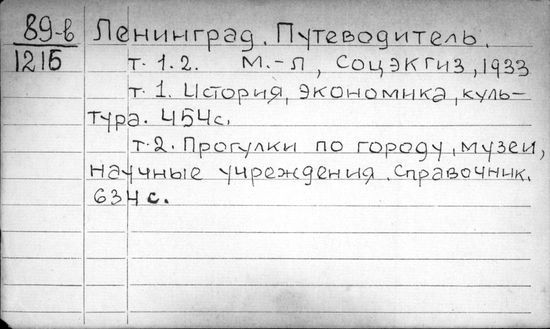 89-в Ленинград. Путеводитель.
1215 т. 1. 2. М.-Л, СОЦЭКГИЗ, 1933
т. 1. История, экономика, куль-
тура. 454с.
т. 2. Прогулки по городу, музеи,
научные учреждения. Справочник.
634 с.